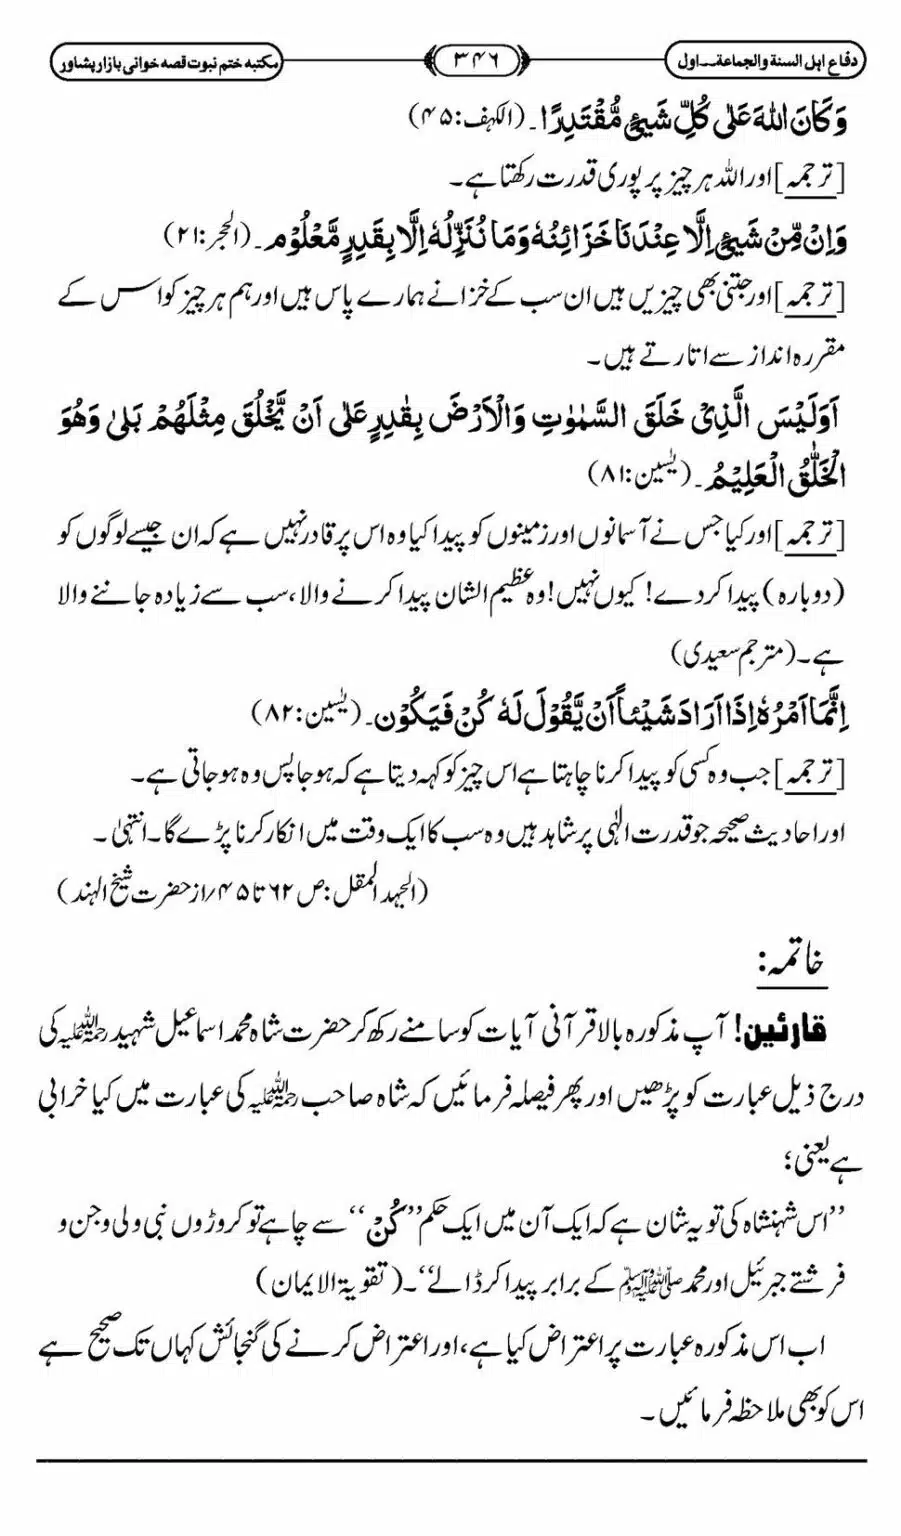 دفاع اہل السنۃ والجماعۃ۔۔اول
۳۴۶
مکتبہ ختم نبوت قصہ خوانی بازار پشاور
وَكَانَ اللهَ عَلٰى كُلِّ شَيْئٍ مُّقْتَدِرًا۔ (الکہف:۴۵)
[ترجمہ] اور اللہ ہر چیز پر پوری قدرت رکھتا ہے۔
وَاِنْ مِّنْ شَيْئٍ اِلَّا عِنْدَنَا خَزَائِنُهٗ وَمَا نُنَزِّلُهٗ اِلَّا بِقَدِرٍ مَّعْلُوْم۔ (الحجر:۲۱)
[ترجمہ] اور جتنی بھی چیزیں ہیں ان سب کے خزانے ہمارے پاس ہیں اور ہم ہر چیز کو اس کے
مقررہ انداز سے اتارتے ہیں۔
اَوَلَيْسَ الَّذِيْ خَلَقَ السَّمٰوٰتِ وَالْاَرْضَ بِقٰدِرٍ عَلٰى اَنْ يَّخْلُقَ مِثْلَهُمْ بَلٰى وَهُوَ
الْخَلّٰقُ الْعَلِيْمُ۔ (یٰسین:۸۱)
[ترجمہ] اور کیا جس نے آسمانوں اور زمینوں کو پیدا کیا وہ اس پر قادر نہیں ہے کہ ان جیسے لوگوں کو
(دوبارہ) پیدا کر دے! کیوں نہیں! وہ عظیم الشان پیدا کرنے والا، سب سے زیادہ جاننے والا
ہے۔ (مترجم سعیدی)
اِنَّمَا اَمْرُهٗ اِذَا اَرَادَ شَيْئاً اَنْ يَّقُوْلَ لَهٗ كُنْ فَيَكُوْن۔ (یٰسین:۸۲)
[ترجمہ] جب وہ کسی کو پیدا کرنا چاہتا ہے اس چیز کو کہہ دیتا ہے کہ ہو جا پس وہ ہو جاتی ہے۔
اور احادیث صحیحہ جو قدرت الٰہی پر شاہد ہیں وہ سب کا ایک وقت میں انکار کرنا پڑے گا۔ انتہیٰ۔
(الجہد المقل: ص ۶۲ تا ۴۵/ از حضرت شیخ الہند)
خاتمہ:
قارئین! آپ مذکورہ بالا قرآنی آیات کو سامنے رکھ کر حضرت شاہ محمد اسماعیل شہید رحمۃ اللہ علیہ کی
درج ذیل عبارت کو پڑھیں اور پھر فیصلہ فرمائیں کہ شاہ صاحب رحمۃ اللہ علیہ کی عبارت میں کیا خرابی
ہے یعنی؛
’’اس شہنشاہ کی تو یہ شان ہے کہ ایک آن میں ایک حکم ’’كُنْ‘‘ سے چاہے تو کروڑوں نبی ولی و جن و
فرشتے جبرئیل اور محمد ﷺ کے برابر پیدا کر ڈالے‘‘۔ (تقویۃ الایمان)
اب اس مذکورہ عبارت پر اعتراض کیا ہے، اور اعتراض کرنے کی گنجائش کہاں تک صحیح ہے
اس کو بھی ملاحظہ فرمائیں۔